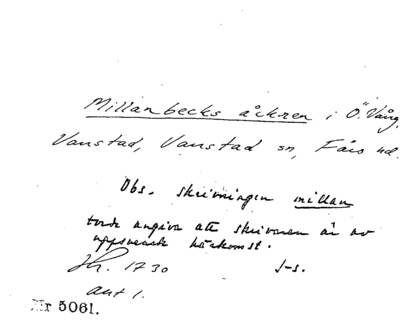 Millanbecks åckren i Ö. Vång,
Vanstad, Vanstad sn, Färs hd.
Obs. skrivningen millan
torde angiva att skrivaren är av
uppsvensk härkomst.
Jh. 1730 J-s.
akt 1.
Nr 5061.